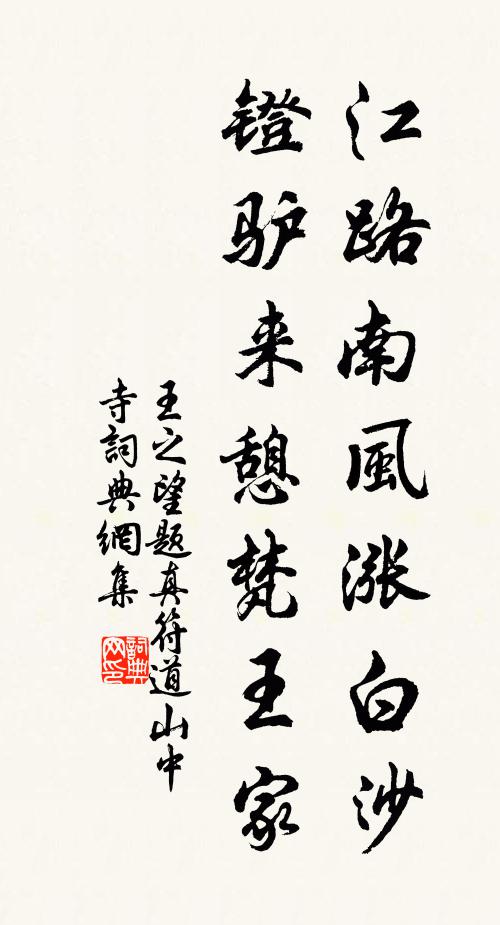 江路南風漲白沙
镫驴来憩梵王家
王之望题真符道山中
寺詞典網集
詞典网印